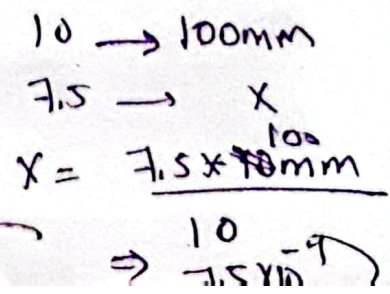 10 → 100mm
7.5 → X
X = 7.5 * 100mm
10
⇒ 7.5 X10